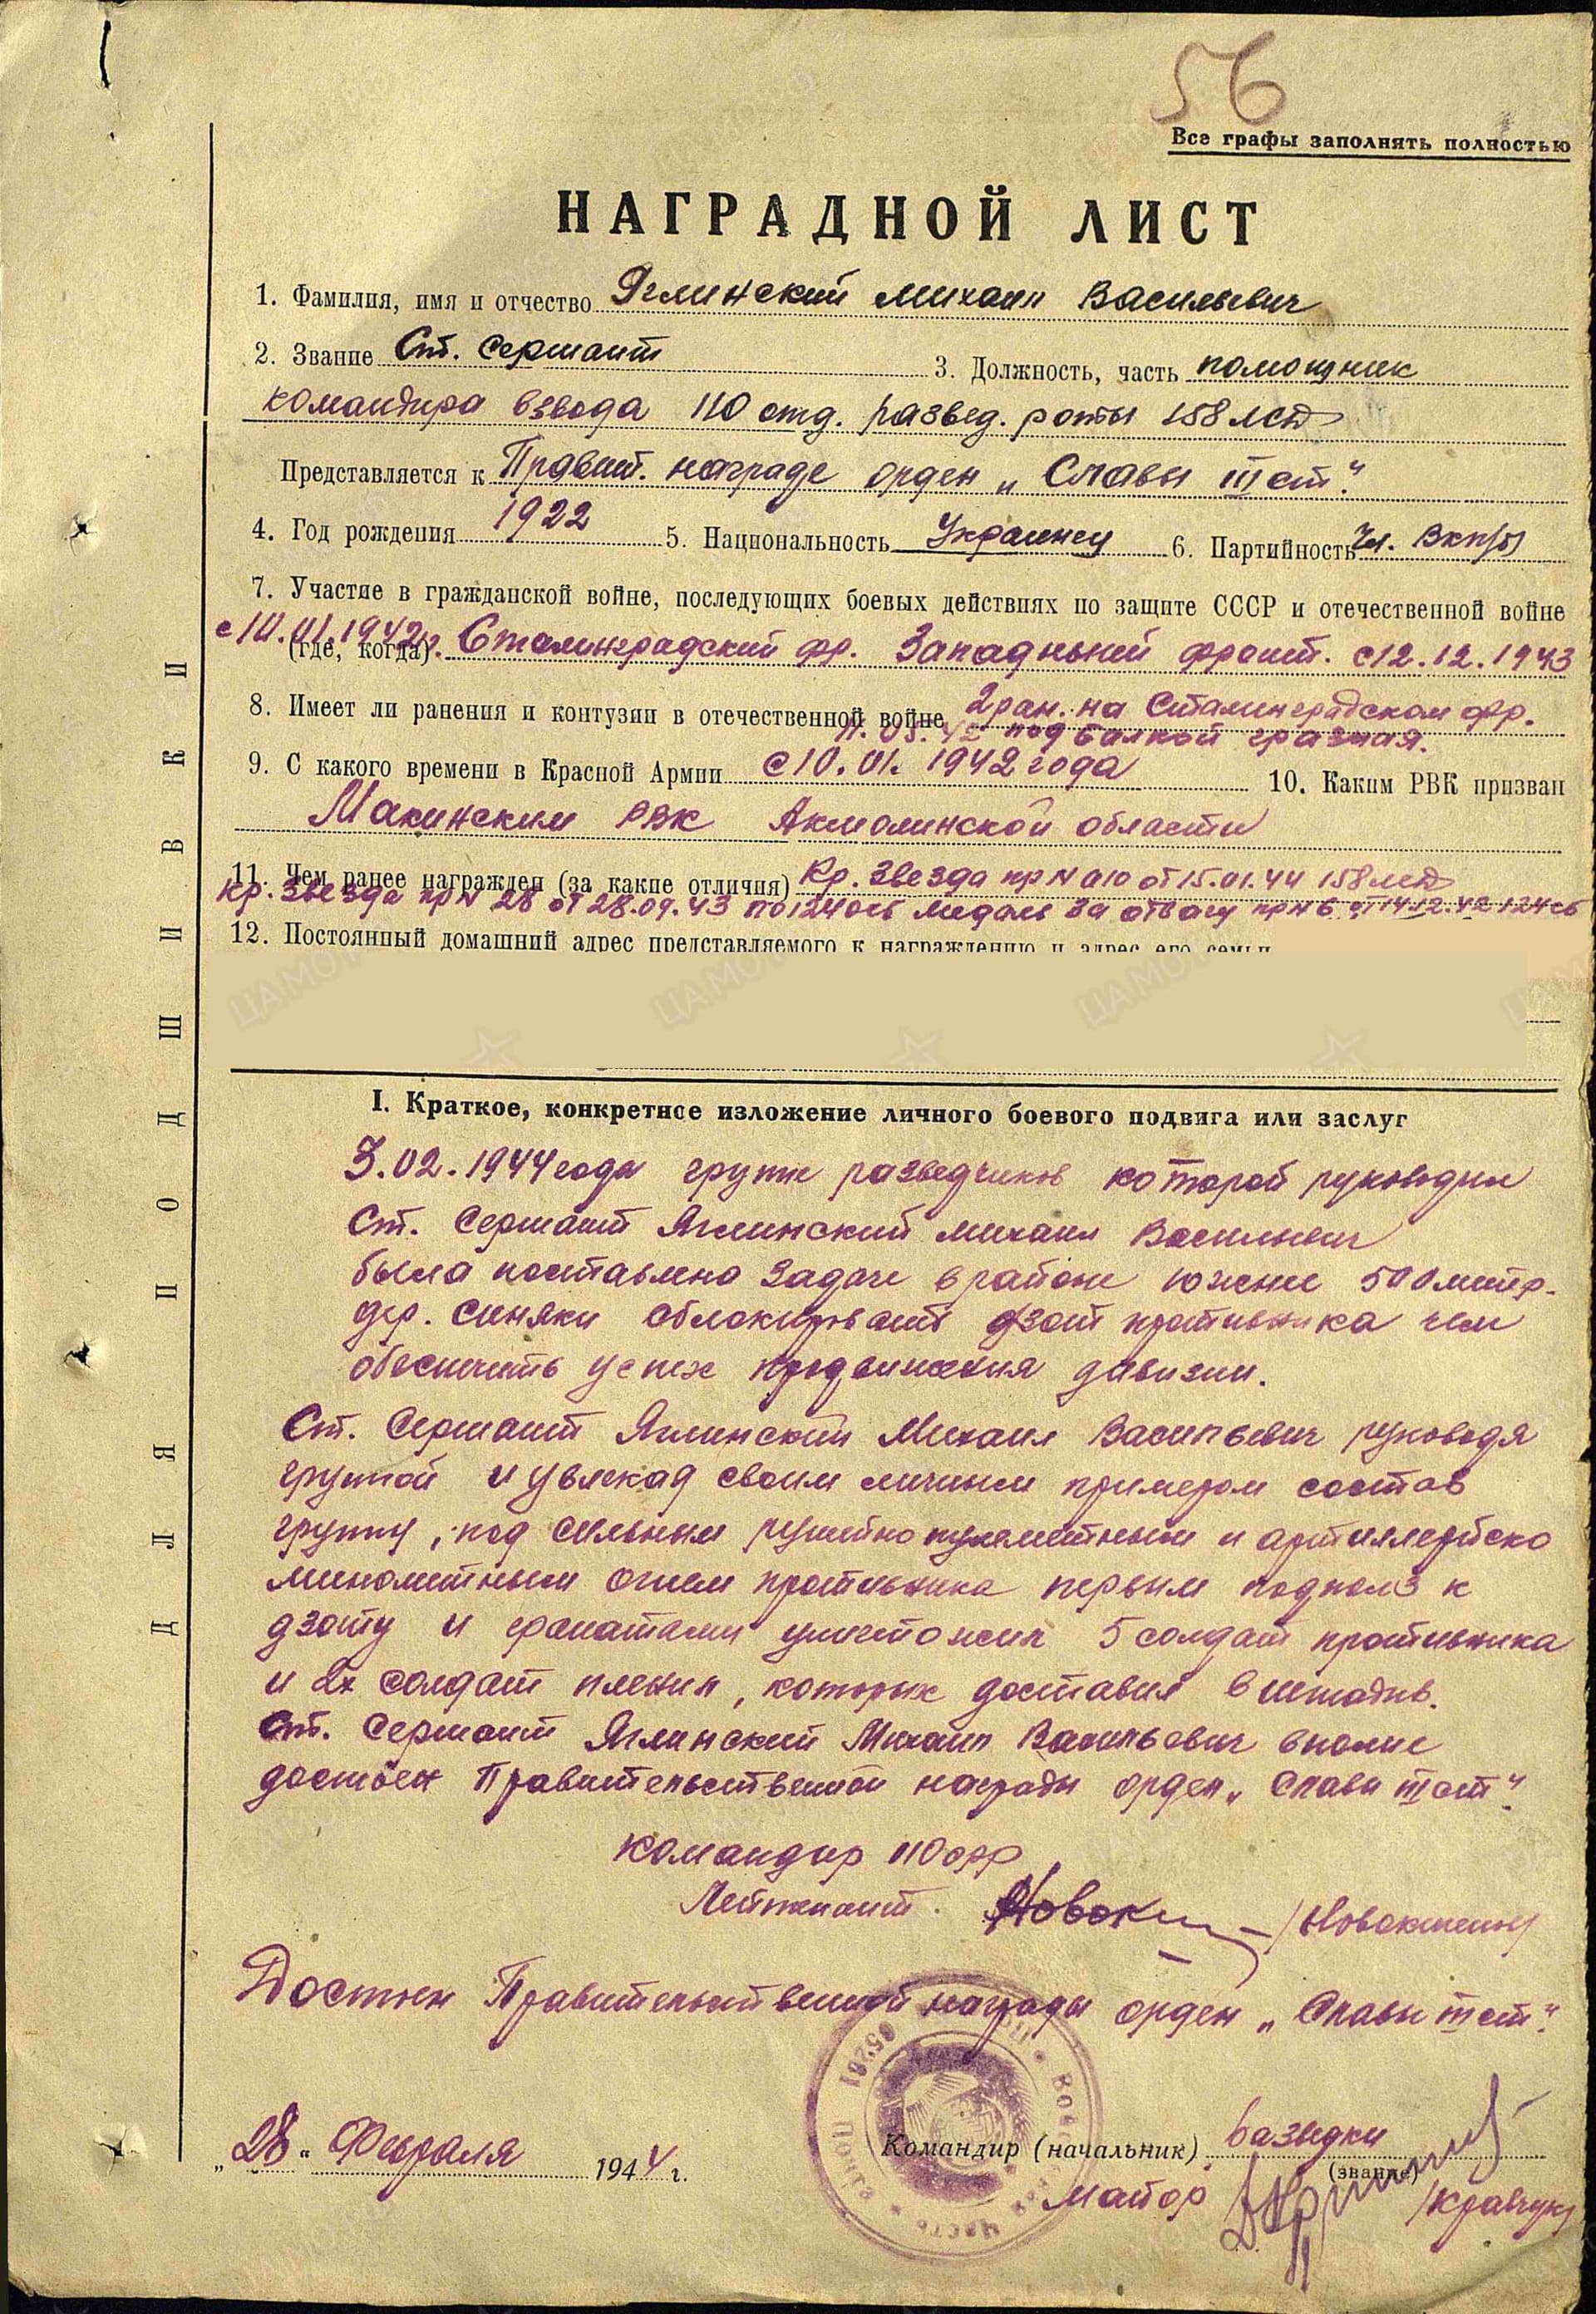 56
Все графы заполнять полностью
НАГРАДНОЙ ЛИСТ
1. Фамилия, имя и отчество Яглинский Михаил Васильевич
2. Звание Ст. Сержант 3. Должность, часть помощник
командира взвода 110 отд. развед. роты 158 лсд
Представляется к Правит. награде орден „Славы III ст."
4. Год рождения 1922 5. Национальность Украинец 6. Партийность Чл. ВКП(б)
7. Участие в гражданской войне, последующих боевых действиях по защите СССР и отечественной войне
(где, когда) с 10.01.1942г. Сталинградский фр. Западный фронт. с 12.12.1943
8. Имеет ли ранения и контузии в отечественной войне 2 ран. на Сталинградском фр.
под балкой грязная.
9. С какого времени в Красной Армии с 10.01.1942 года 10. Каким РВК призван
Макинским РВК Акмолинской области
11. Чем ранее награжден (за какие отличия) Кр. Звезда пр N 010 от 15.01.44 158 лсд
Кр. Звезда пр N 28 от 28.09.43 по 124 осб медаль за отвагу пр N 6 от 14.12.42 124 сб
12. Постоянный домашний адрес представляемого к награждению и адрес его семьи
I. Краткое, конкретное изложение личного боевого подвига или заслуг
3.02.1944 года групе разведчиков которой руководил
Ст. Сержант Яглинский Михаил Васильевич
была поставлена задача в районе южнее 500 метр.
дер. Синяки облокировать дзот противника чем
обеспечить успех продвижения дивизии.
Ст. Сержант Яглинский Михаил Васильевич руководя
групой и увлекая своим личным примером состав
группы, под сильным ружейно пулеметным и артиллерийско
минометным огнем противника первым подполз к
дзоту и гранатами уничтожил 5 солдат противника
и 2х солдат пленил, которых доставил в штадив.
Ст. Сержант Яглинский Михаил Васильевич вполне
достоен Правительственной награды орден „Славы III ст".
Командир 110 орр
Лейтенант.
Достоен Правительственной награды орден „Славы III ст".
„28" Февраля 1944 г.
Командир (начальник) разведки
(звание)
Майор /Кравчук/
ДЛЯ ПОДШИВКИ